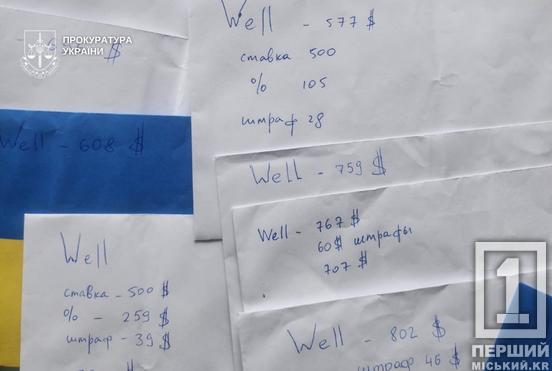 ПРОКУРАТУРА
УКРАЇНИ
Well - 577 $
ставка 500
% 105
штраф 28
Well - 608 $
Well - 759 $
Well - 767 $
60$ штрафы
707 $
Well
ставка - 500 $
% - 259 $
штраф - 39 $
Well - 802 $
штраф 46 $
1
ПЕРШИЙ
МІСЬКИЙ.KR